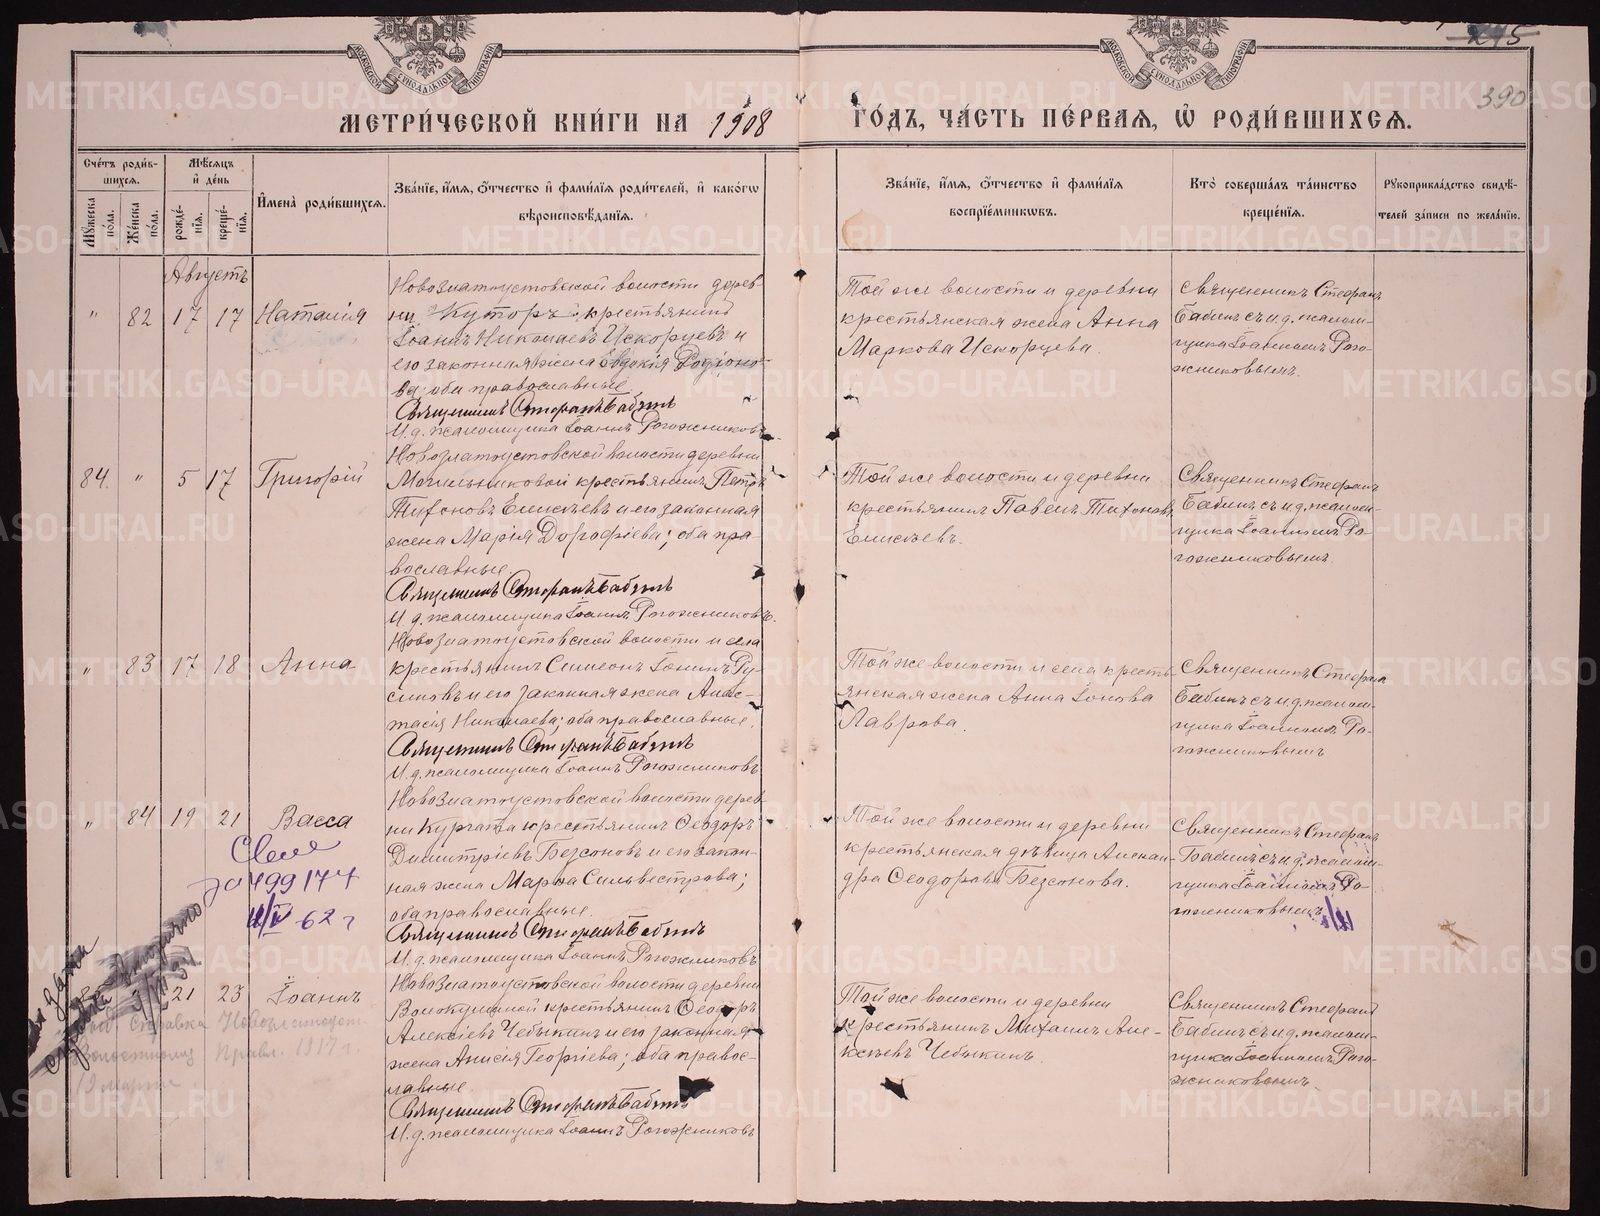 МЕТРИ́ЧЕСКОЙ КНИ́ГИ НА 1908
ГО́ДЪ, ЧА́СТЬ ПЕ́РВАЯ, Ѿ РОДИ́ВШИХСЯ.
245
390
Сче́тъ роди́в-
шихся.
Мꙋ́жеска по́ла.
Же́нска по́ла.
Мѣ́сяцъ
и҆ де́нь
рожде́-
нїѧ.
креще́-
нїѧ.
И҆мена̀ роди́вшихсѧ.
Зва́нїе, и҆́мѧ, ѻ҆́тчество и҆ фами́лїѧ роди́телей, и҆ како́гѡ
вѣроисповѣ́данїѧ.
Зва́нїе, и҆́мѧ, ѻ҆́тчество и҆ фами́лїѧ
воспрїе́мникѡвъ.
Кто̀ соверша́лъ та́инство
креще́нїѧ.
Рꙋкоприкла́дство свидѣ́-
телей за́писи по жела́нїю.
Августъ
" 82 17 17 Наталія
Новозлатоустовской волости дерев-
ни Куторъ, крестьянинъ
Іоаннъ Николаевъ Искорцевъ и
его законная жена Евдокія Родіоно-
ва; оба православные.
Священникъ Стефанъ Бабинъ
И. д. псаломщика Іоаннъ Рогожниковъ
Той же волости и деревни
крестьянская жена Анна
Маркова Искорцева.
Священникъ Стефанъ
Бабинъ съ и. д. псалом-
щика Іоанномъ Рого-
жниковымъ.
84. " 5 17 Григорій
Новозлатоустовской волости деревни
Могильниковой крестьянинъ Петръ
Тихоновъ Елисѣевъ и его законная
жена Марія Дорофіева; оба пра-
вославные.
Священникъ Стефанъ Бабинъ
И. д. псаломщика Іоаннъ Рогожниковъ.
Той же волости и деревни
крестьянинъ Павелъ Тихоновъ
Елисѣевъ.
Священникъ Стефанъ
Бабинъ съ и. д. псалом-
щика Іоанномъ Ро-
гожниковымъ
" 83 17 18 Анна
Новозлатоустовской волости и села
крестьянинъ Симеонъ Іонинъ Ру-
синовъ и его законная жена Анас-
тасія Николаева; оба православные.
Священникъ Стефанъ Бабинъ
И. д. псаломщика Іоаннъ Рогожниковъ
Той же волости и села кресть-
янская жена Анна Іонова
Лаврова.
Священникъ Стефанъ
Бабинъ съ и. д. псалом-
щика Іоанномъ Ро-
гожниковымъ
" 84 19 21 Васса
Новозлатоустовской волости дерев-
ни Кургата крестьянинъ Ѳеодоръ
Димитріевъ Безсоновъ и его закон-
ная жена Марѳа Сильвестрова;
оба православные.
Священникъ Стефанъ Бабинъ
И. д. псаломщика Іоаннъ Рогожниковъ
Той же волости и деревни
крестьянская дѣвица Алексан-
дра Ѳеодорова Безсонова.
Священникъ Стефанъ
Бабинъ съ и. д. псалом-
щика Іоанномъ Ро-
гожниковымъ
499177
62 г
21 23 Іоаннъ
Новозлатоустовской волости деревни
Волокушной крестьянинъ Ѳеодоръ
Алексіевъ Чебыкинъ и его законная
жена Анисія Георгіева; оба право-
славные.
Священникъ Стефанъ Бабинъ
И. д. псаломщика Іоаннъ Рогожниковъ
Той же волости и деревни
крестьянинъ Михаилъ Але-
ксѣевъ Чебыкинъ.
Священникъ Стефанъ
Бабинъ съ и. д. псалом-
щика Іоанномъ Рого-
жниковымъ
справка Новозлатоуст.
Волостному Правл. 1917 г.
12 Марта.
METRIKI.GASO-URAL.RU